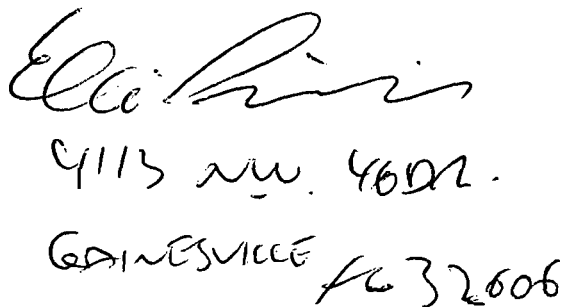 4113 NW. 46DR.
GAINESVILLE FL 32606